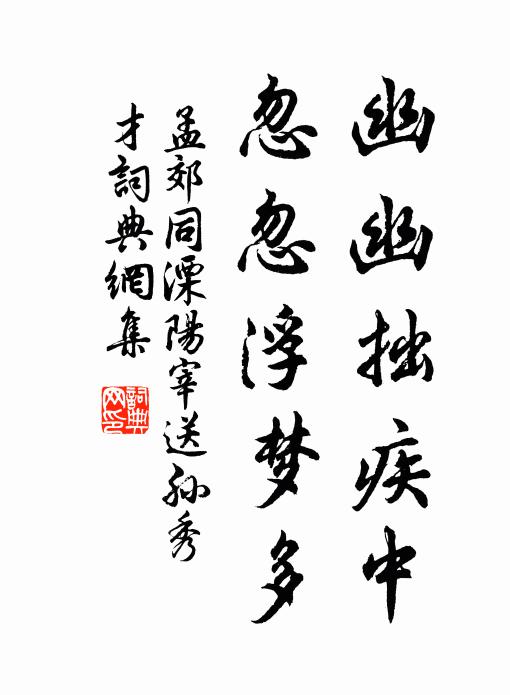 幽幽拙疾中
忽忽浮梦多
孟郊同溧陽宰送孙秀
才詞典網集
詞典
网印